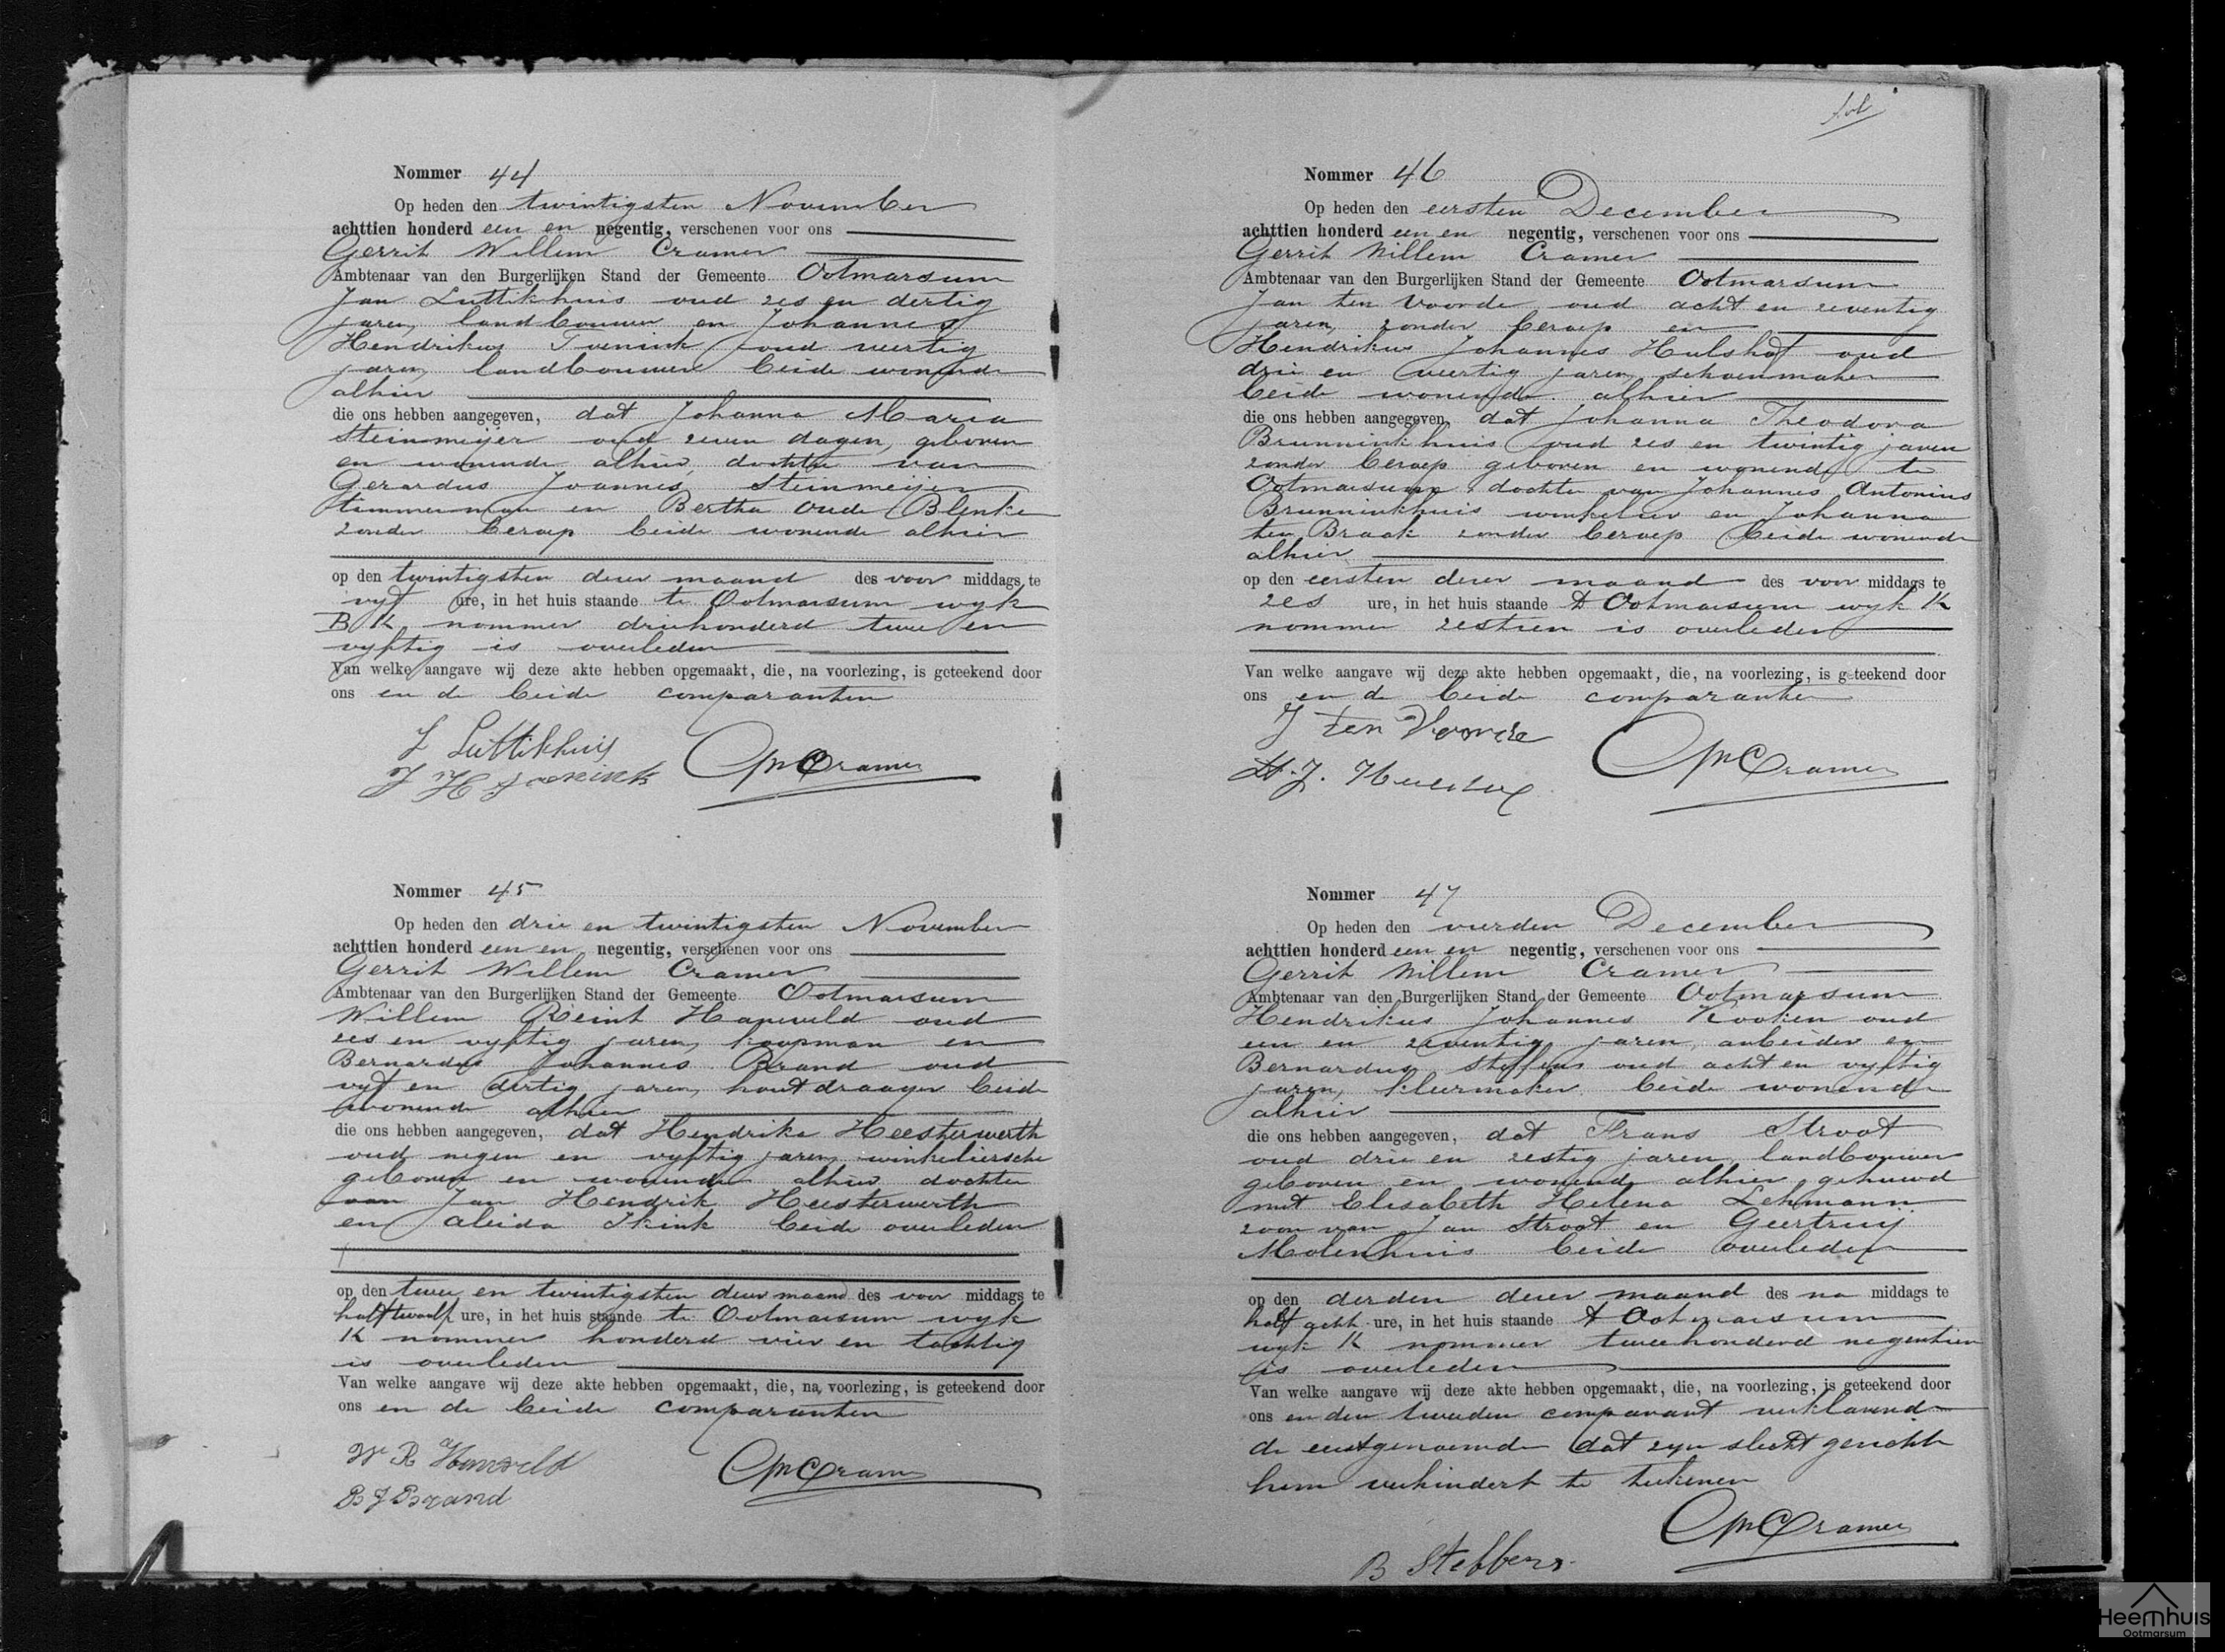 Nommer 44
Op heden den twintigsten November
achttien honderd een en negentig, verschenen voor ons
Gerrit Willem Cramer
Ambtenaar van den Burgerlijken Stand der Gemeente Ootmarsum
Jan Luttikhuis oud zes en dertig
jaren, landbouwer en Johannes
Hendrikus oud veertig
jaren, landbouwer beide wonende
alhier
die ons hebben aangegeven, dat Johanna Maria
Steinmeijer oud zeven dagen, geboren
en wonende alhier, dochter van
Gerardus Joannes Steinmeijer
timmerman en Bertha Oude Blenke
zonder beroep beide wonende alhier
op den twintigsten dezer maand des voor middags te
vyf ure, in het huis staande te Ootmarsum wyk
B K nommer driehonderd twee en
vyftig is overleden
Van welke aangave wij deze akte hebben opgemaakt, die, na voorlezing, is geteekend door
ons en de beide comparanten
J Luttikhuis
J H GWCramer
Nommer 45
Op heden den drie en twintigsten November
achttien honderd een en negentig, verschenen voor ons
Gerrit Willem Cramer
Ambtenaar van den Burgerlijken Stand der Gemeente Ootmarsum
Willem Reint Haneveld oud
zes en vyftig jaren, koopman en
Bernardus Johannes Brand oud
vyf en dertig jaren, houtdraager beide
wonende alhier
die ons hebben aangegeven, dat Hendrika Heesterwerth
oud negen en vyftig jaren, winkeliersche
geboren en wonende alhier dochter
van Jan Hendrik Heesterwerth
en Aleida Ikink beide overleden
op den twee en twintigsten dezer maand des voor middags te
half twaalf ure, in het huis staande te Ootmarsum wyk
K nommer honderd vier en tachtig
is overleden
Van welke aangave wij deze akte hebben opgemaakt, die, na voorlezing, is geteekend door
ons en de beide comparanten
W R Haneveld GWCramer
B J Brand
Nommer 46
Op heden den eersten December
achttien honderd een en negentig, verschenen voor ons
Gerrit Willem Cramer
Ambtenaar van den Burgerlijken Stand der Gemeente Ootmarsum
Jan ten Voorde oud acht en zeventig
jaren, zonder beroep en
Hendrikus Johannes Hulshof oud
drie en veertig jaren schoenmaker
beide wonende alhier
die ons hebben aangegeven, dat Johanna Theodora
Brunninkhuis oud zes en twintig jaren
zonder beroep geboren en wonende te
Ootmarsum dochter van Johannes Antonius
Brunninkhuis winkelier en Johanna
ten Braak zonder beroep beide wonende
alhier
op den eersten dezer maand des voor middags te
zes ure, in het huis staande te Ootmarsum wyk K
nommer zestien is overleden
Van welke aangave wij deze akte hebben opgemaakt, die, na voorlezing, is geteekend door
ons en de beide comparanten
J ten Voorde GWCramer
H. J. Hulshof
Nommer 47
Op heden den vierden December
achttien honderd een en negentig, verschenen voor ons
Gerrit Willem Cramer
Ambtenaar van den Burgerlijken Stand der Gemeente Ootmarsum
Hendrikus Johannes Kooken oud
een en zeventig jaren, arbeider en
Bernardus Steffens oud acht en vyftig
jaren, kleermaker beide wonende
alhier
die ons hebben aangegeven, dat Frans Stroot
oud drie en zestig jaren, landbouwer
geboren en wonende alhier, gehuwd
met Elisabeth Helena Lehmann
zoon van Jan Stroot en Geertruij
Molenhuis beide overleden
op den derden dezer maand des na middags te
half acht ure, in het huis staande te Ootmarsum
wyk K nommer tweehonderd negentien
is overleden
Van welke aangave wij deze akte hebben opgemaakt, die, na voorlezing, is geteekend door
ons en den tweeden comparant verklarende
de eerstgenoemde dat zyn slecht gezicht
hem verhindert te teekenen
GWCramer
B Steffens
Heemhuis
Ootmarsum